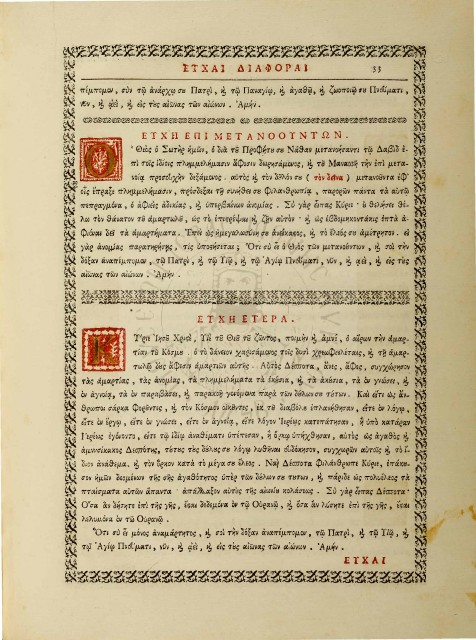 ΕΥΧΑΙ ΔΙΑΦΟΡΑΙ 53
πέμπομεν, σὺν τῷ ἀνάρχῳ σου Πατρὶ, καὶ τῷ Παναγίῳ, καὶ ἀγαθῷ, καὶ ζωοποιῷ σου Πνεύματι,
νῦν, καὶ ἀεὶ, καὶ εἰς τοὺς αἰῶνας τῶν αἰώνων. Ἀμήν.
ΕΥΧΗ ΕΠΙ ΜΕΤΑΝΟΟΥΝΤΩΝ.
Ὁ Θεὸς ὁ Σωτὴρ ἡμῶν, ὁ διὰ τοῦ Προφήτου σου Νάθαν μετανοήσαντι τῷ Δαβὶδ ἐ-
πὶ τοῖς ἰδίοις πλημμελήμασιν ἄφεσιν δωρησάμενος, καὶ τοῦ Μανασσῆ τὴν ἐπὶ μετα-
νοίᾳ προσευχὴν δεξάμενος· αὐτὸς καὶ τὸν δοῦλόν σου (τὸν δεῖνα) μετανοοῦντα ἐφ'
οἷς ἔπραξε πλημμελήμασιν, πρόσδεξαι τῇ συνήθει σου φιλανθρωπίᾳ, παρορῶν πάντα τὰ αὐτῷ
πεπραγμένα, ὁ ἀφιεὶς ἀδικίας, καὶ ὑπερβαίνων ἀνομίας. Σὺ γὰρ εἶπας Κύριε· οὐ θελήσει θέ-
λω τὸν θάνατον τοῦ ἁμαρτωλοῦ, ὡς τὸ ἐπιστρέψαι καὶ ζῆν αὐτόν· καὶ ὡς ἑβδομηκοντάκις ἑπτὰ ἀ-
φιέναι δεῖ τὰ ἁμαρτήματα. Ἐπεὶ ὡς ἡ μεγαλωσύνη σου ἀνείκαστος, καὶ τὸ ἔλεός σου ἀμέτρητον. εἰ
γὰρ ἀνομίας παρατηρήσῃς, τίς ὑποστήσεται; Ὅτι σὺ εἶ ὁ Θεὸς τῶν μετανοούντων, καὶ σοὶ τὴν
δόξαν ἀναπέμπομεν, τῷ Πατρὶ, καὶ τῷ Υἱῷ, καὶ τῷ Ἁγίῳ Πνεύματι, νῦν, καὶ ἀεὶ, καὶ εἰς τοὺς
αἰῶνας τῶν αἰώνων. Ἀμήν.
ΕΥΧΗ ΕΤΕΡΑ.
Κύριε Ἰησοῦ Χριστὲ, Υἱὲ τοῦ Θεοῦ τοῦ ζῶντος, ποιμὴν καὶ ἀμνὲ, ὁ αἴρων τὴν ἁμαρ-
τίαν τοῦ Κόσμου· ὁ τὸ δάνειον χαρισάμενος τοῖς δυσὶ χρεωφειλέταις, καὶ τῇ ἁμαρ-
τωλῷ δοὺς ἄφεσιν ἁμαρτιῶν αὐτῆς· Αὐτὸς Δέσποτα, ἄνες, ἄφες, συγχώρησον
τὰς ἁμαρτίας, τὰς ἀνομίας, τὰ πλημμελήματα τὰ ἑκούσια, καὶ τὰ ἀκούσια, τὰ ἐν γνώσει, καὶ
ἐν ἀγνοίᾳ, τὰ ἐν παραβάσει, καὶ παρακοῇ γενόμενα παρὰ τῶν δούλων σου τούτων. Καὶ εἴτι ὡς ἄν-
θρωποι σάρκα φοροῦντες, καὶ τὸν Κόσμον οἰκοῦντες, ἐκ τοῦ διαβόλου ἐπλανήθησαν, εἴτε ἐν λόγῳ,
εἴτε ἐν ἔργῳ, εἴτε ἐν γνώσει, εἴτε ἐν ἀγνοίᾳ, εἴτε λόγον Ἱερέως κατεπάτησαν, ἢ ὑπὸ κατάραν
Ἱερέως ἐγένοντο, εἴτε τῷ ἰδίῳ ἀναθέματι ὑπέπεσαν, ἢ ὅρκῳ ὑπήχθησαν, αὐτὸς ὡς ἀγαθὸς καὶ
ἀμνησίκακος Δεσπότης, τούτους τοὺς δούλους σου λόγῳ λυθῆναι εὐδόκησον, συγχωρῶν αὐτοῖς καὶ τὸ ἴ-
διον ἀνάθεμα, καὶ τὸν ὅρκον κατὰ τὸ μέγα σου ἔλεος. Ναὶ Δέσποτα Φιλάνθρωπε Κύριε, ἐπάκου-
σον ἡμῶν δεομένων τῆς σῆς ἀγαθότητος ὑπὲρ τῶν δούλων σου τούτων, καὶ πάριδε ὡς πολυέλεος τὰ
πταίσματα αὐτῶν ἅπαντα· ἀπάλλαξον αὐτοὺς τῆς αἰωνίου κολάσεως. Σὺ γὰρ εἶπας Δέσποτα·
Ὅσα ἂν δήσητε ἐπὶ τῆς γῆς, ἔσται δεδεμένα ἐν τῷ Οὐρανῷ, καὶ ὅσα ἂν λύσητε ἐπὶ τῆς γῆς, ἔσται
λελυμένα ἐν τῷ Οὐρανῷ.
Ὅτι σὺ εἶ μόνος ἀναμάρτητος, καὶ σοὶ τὴν δόξαν ἀναπέμπομεν, τῷ Πατρὶ, καὶ τῷ Υἱῷ, καὶ
τῷ Ἁγίῳ Πνεύματι, νῦν, καὶ ἀεὶ, καὶ εἰς τοὺς αἰῶνας τῶν αἰώνων. Ἀμήν.
ΕΥΧΑΙ